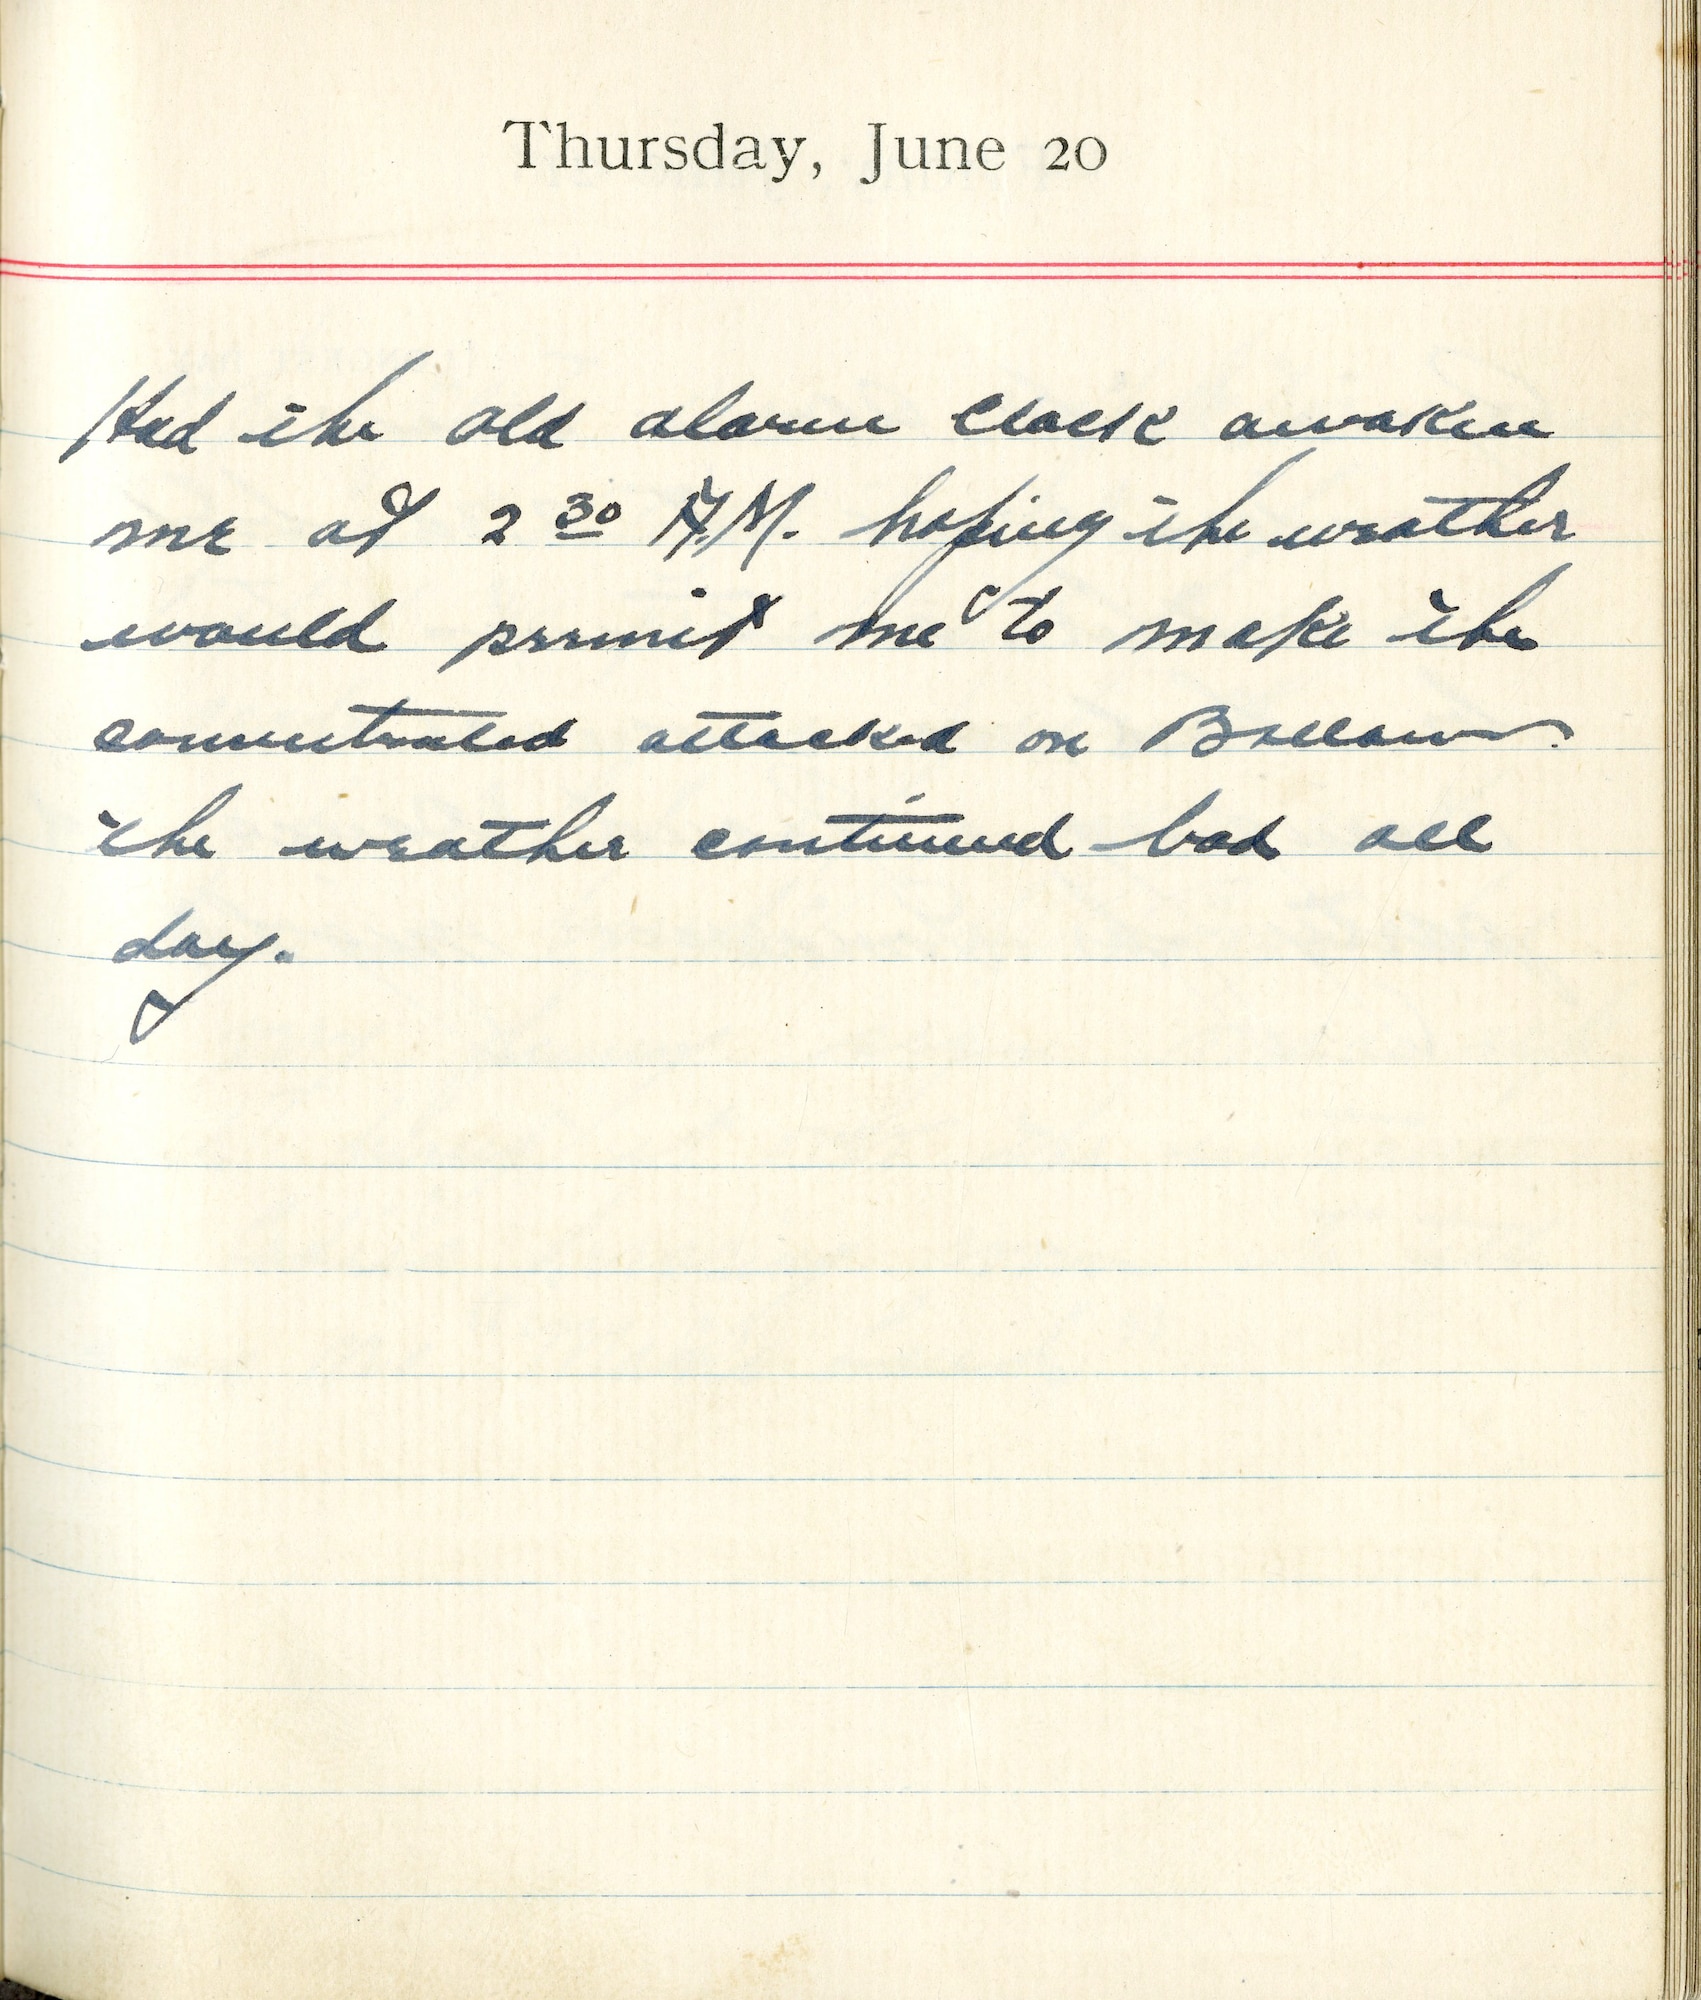 Thursday, June 20
Had the old alarm clock awaken
me at 2 30 A.M. hoping the weather
would permit me to make the
concentrated attacked on
the weather continued bad all
day.